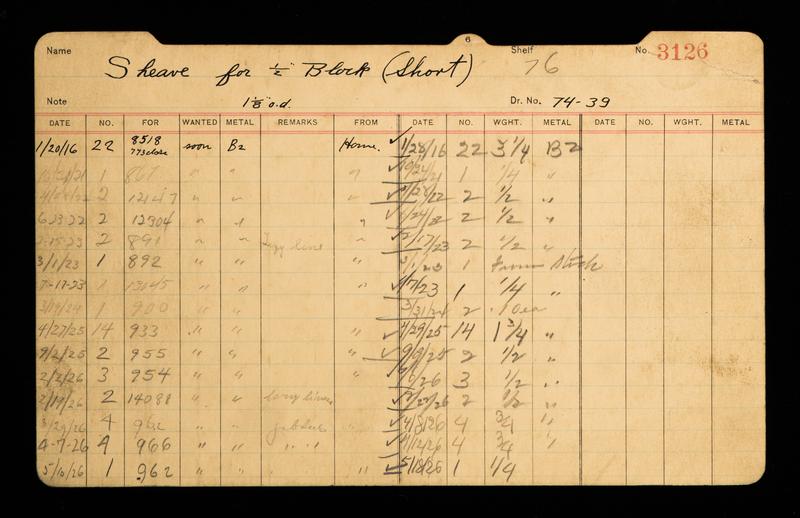 6
Name Shelf No. 3126
Sheave for ½" Block (Short) 76
Note 1⅛" o.d. Dr. No. 74-39
DATE NO. FOR WANTED METAL REMARKS FROM DATE NO. WGHT. METAL DATE NO. WGHT. METAL
1/20/16 22 8518 soon Bz Home. ✓ 1/28/16 22 3 ¼ Bz
1 " " " ✓ 1 ¼ "
2 12147 " " " ✓ 2 ½ "
6-23-22 2 12304 " " " ✓ 2 ½ "
2 891 " " " ✓ 2/17/23 2 ½ "
3/1/23 1 892 " " " 1 From Stock
7-17-23 1 13045 " " " ✓ 1 ¼ "
3/19/24 1 900 " " 3/31/24 2
4/27/25 14 933 " " " ✓ 4/29/25 14 1 ¾ "
9/2/25 2 955 " " " ✓ 2 ½ "
2/2/26 3 954 " " " ✓ 3 ½ "
2/19/26 2 14088 " " ✓ 2/27/26 2 ½ "
3/29/26 4 962 " " ✓ 4/3/26 4 ¾ "
4-7-26 4 966 " " " " ✓ 4/12/26 4 ¾ "
5/10/26 1 962 " " " ✓ 5/18/26 1 ¼